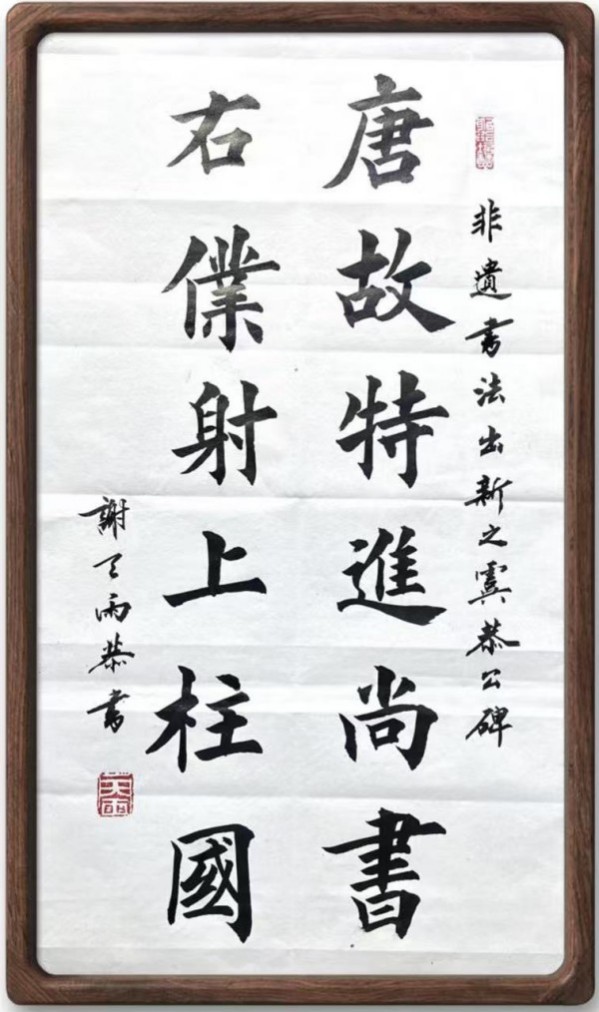 非遺書法出新之虞恭公碑
唐故特進尚書
右僕射上柱國
謝天雨恭書